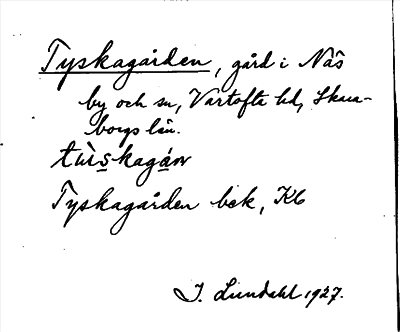 Tyskagården, gård i Näs
by och sn, Vartofta hd, Skara-
borgs län.
tùskagán
Tyskagården bek, Kb
I. Lundahl 1927.